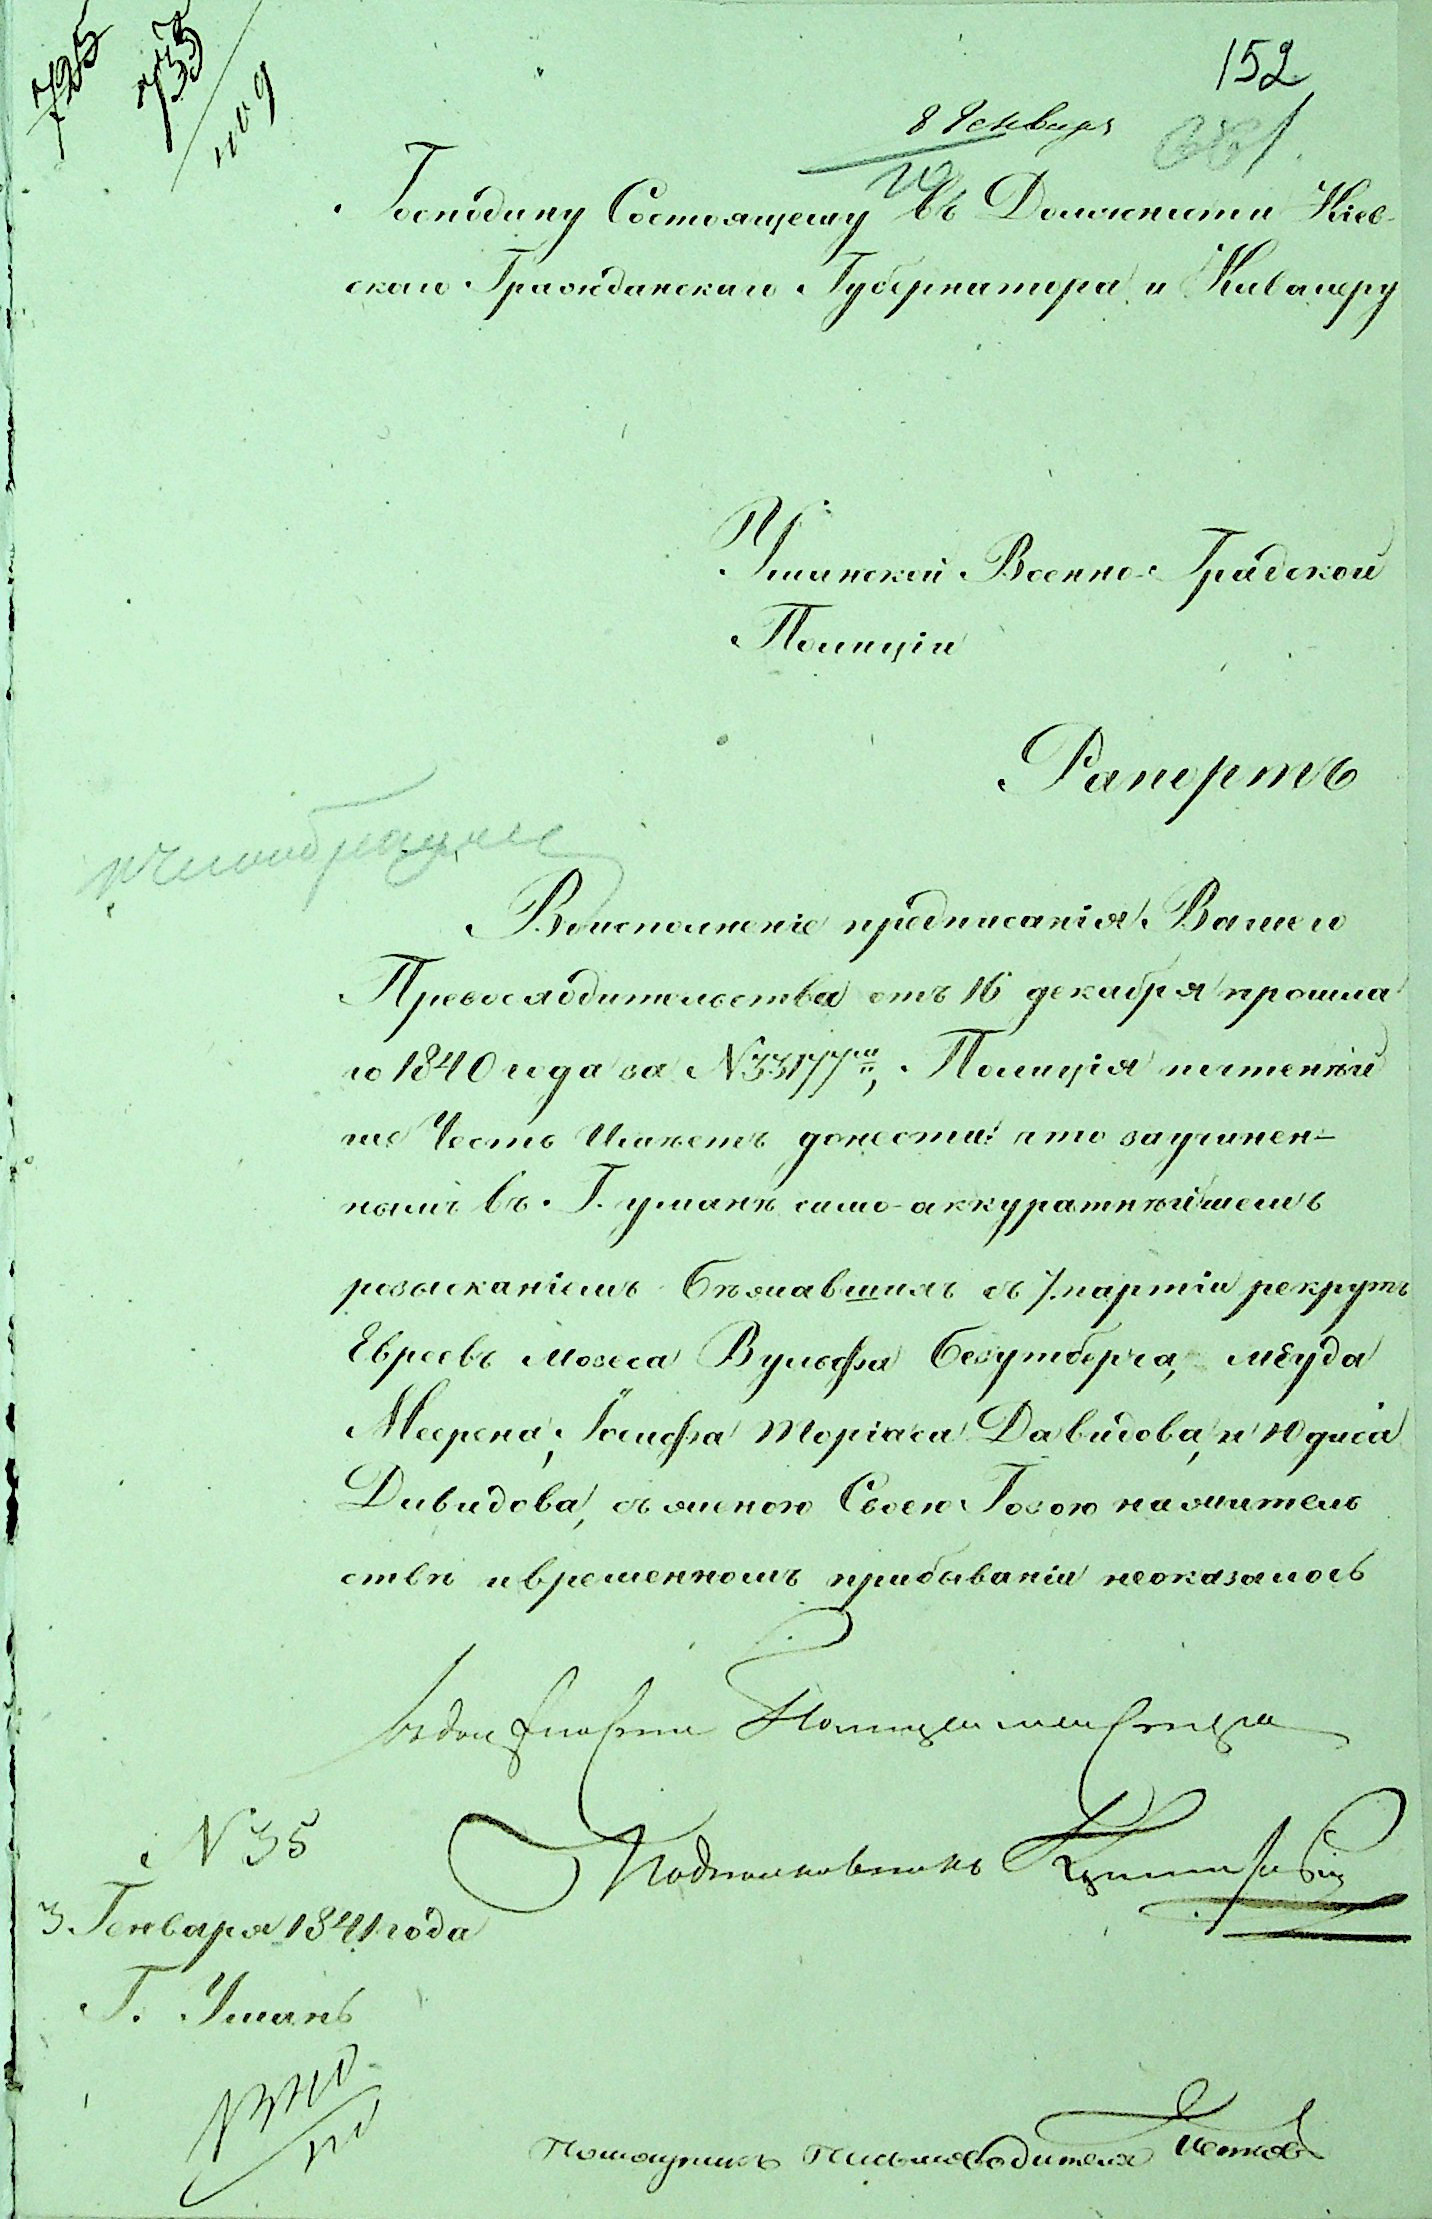 725
733
152
8 Генваря
Господину Состоящему въ Должности Кіев-
скаго Гражданскаго Губернатора и Кавалеру
Уманской Военно-Градской
Полиціи
Рапортъ
Воисполненіе предписанія Вашего
Превосходительства отъ 16 декабря прошла
го 1840 года за N 33177м, Полиція почтеннѣй
ше Честь Имѣетъ донести: что заучинен-
нымъ въ Г. уманѣ само-аккуратнѣйшемъ
розысканіемъ бѣжавшихъ съ 7. партіи рекрутъ
Евреевъ Мозеса Вульфа Безутберга, Меуда
Меерена, Іосифа Моріаса Давидова, и Юдиса
Давидова, съ женою Своею Гозою на жител
ствѣ и временномъ прибываніи неоказалось
Полицеймейстера
Подполковникъ
N 35
3 Генваря 1841 года
Г. Умань
Помощникъ Письмоводителя